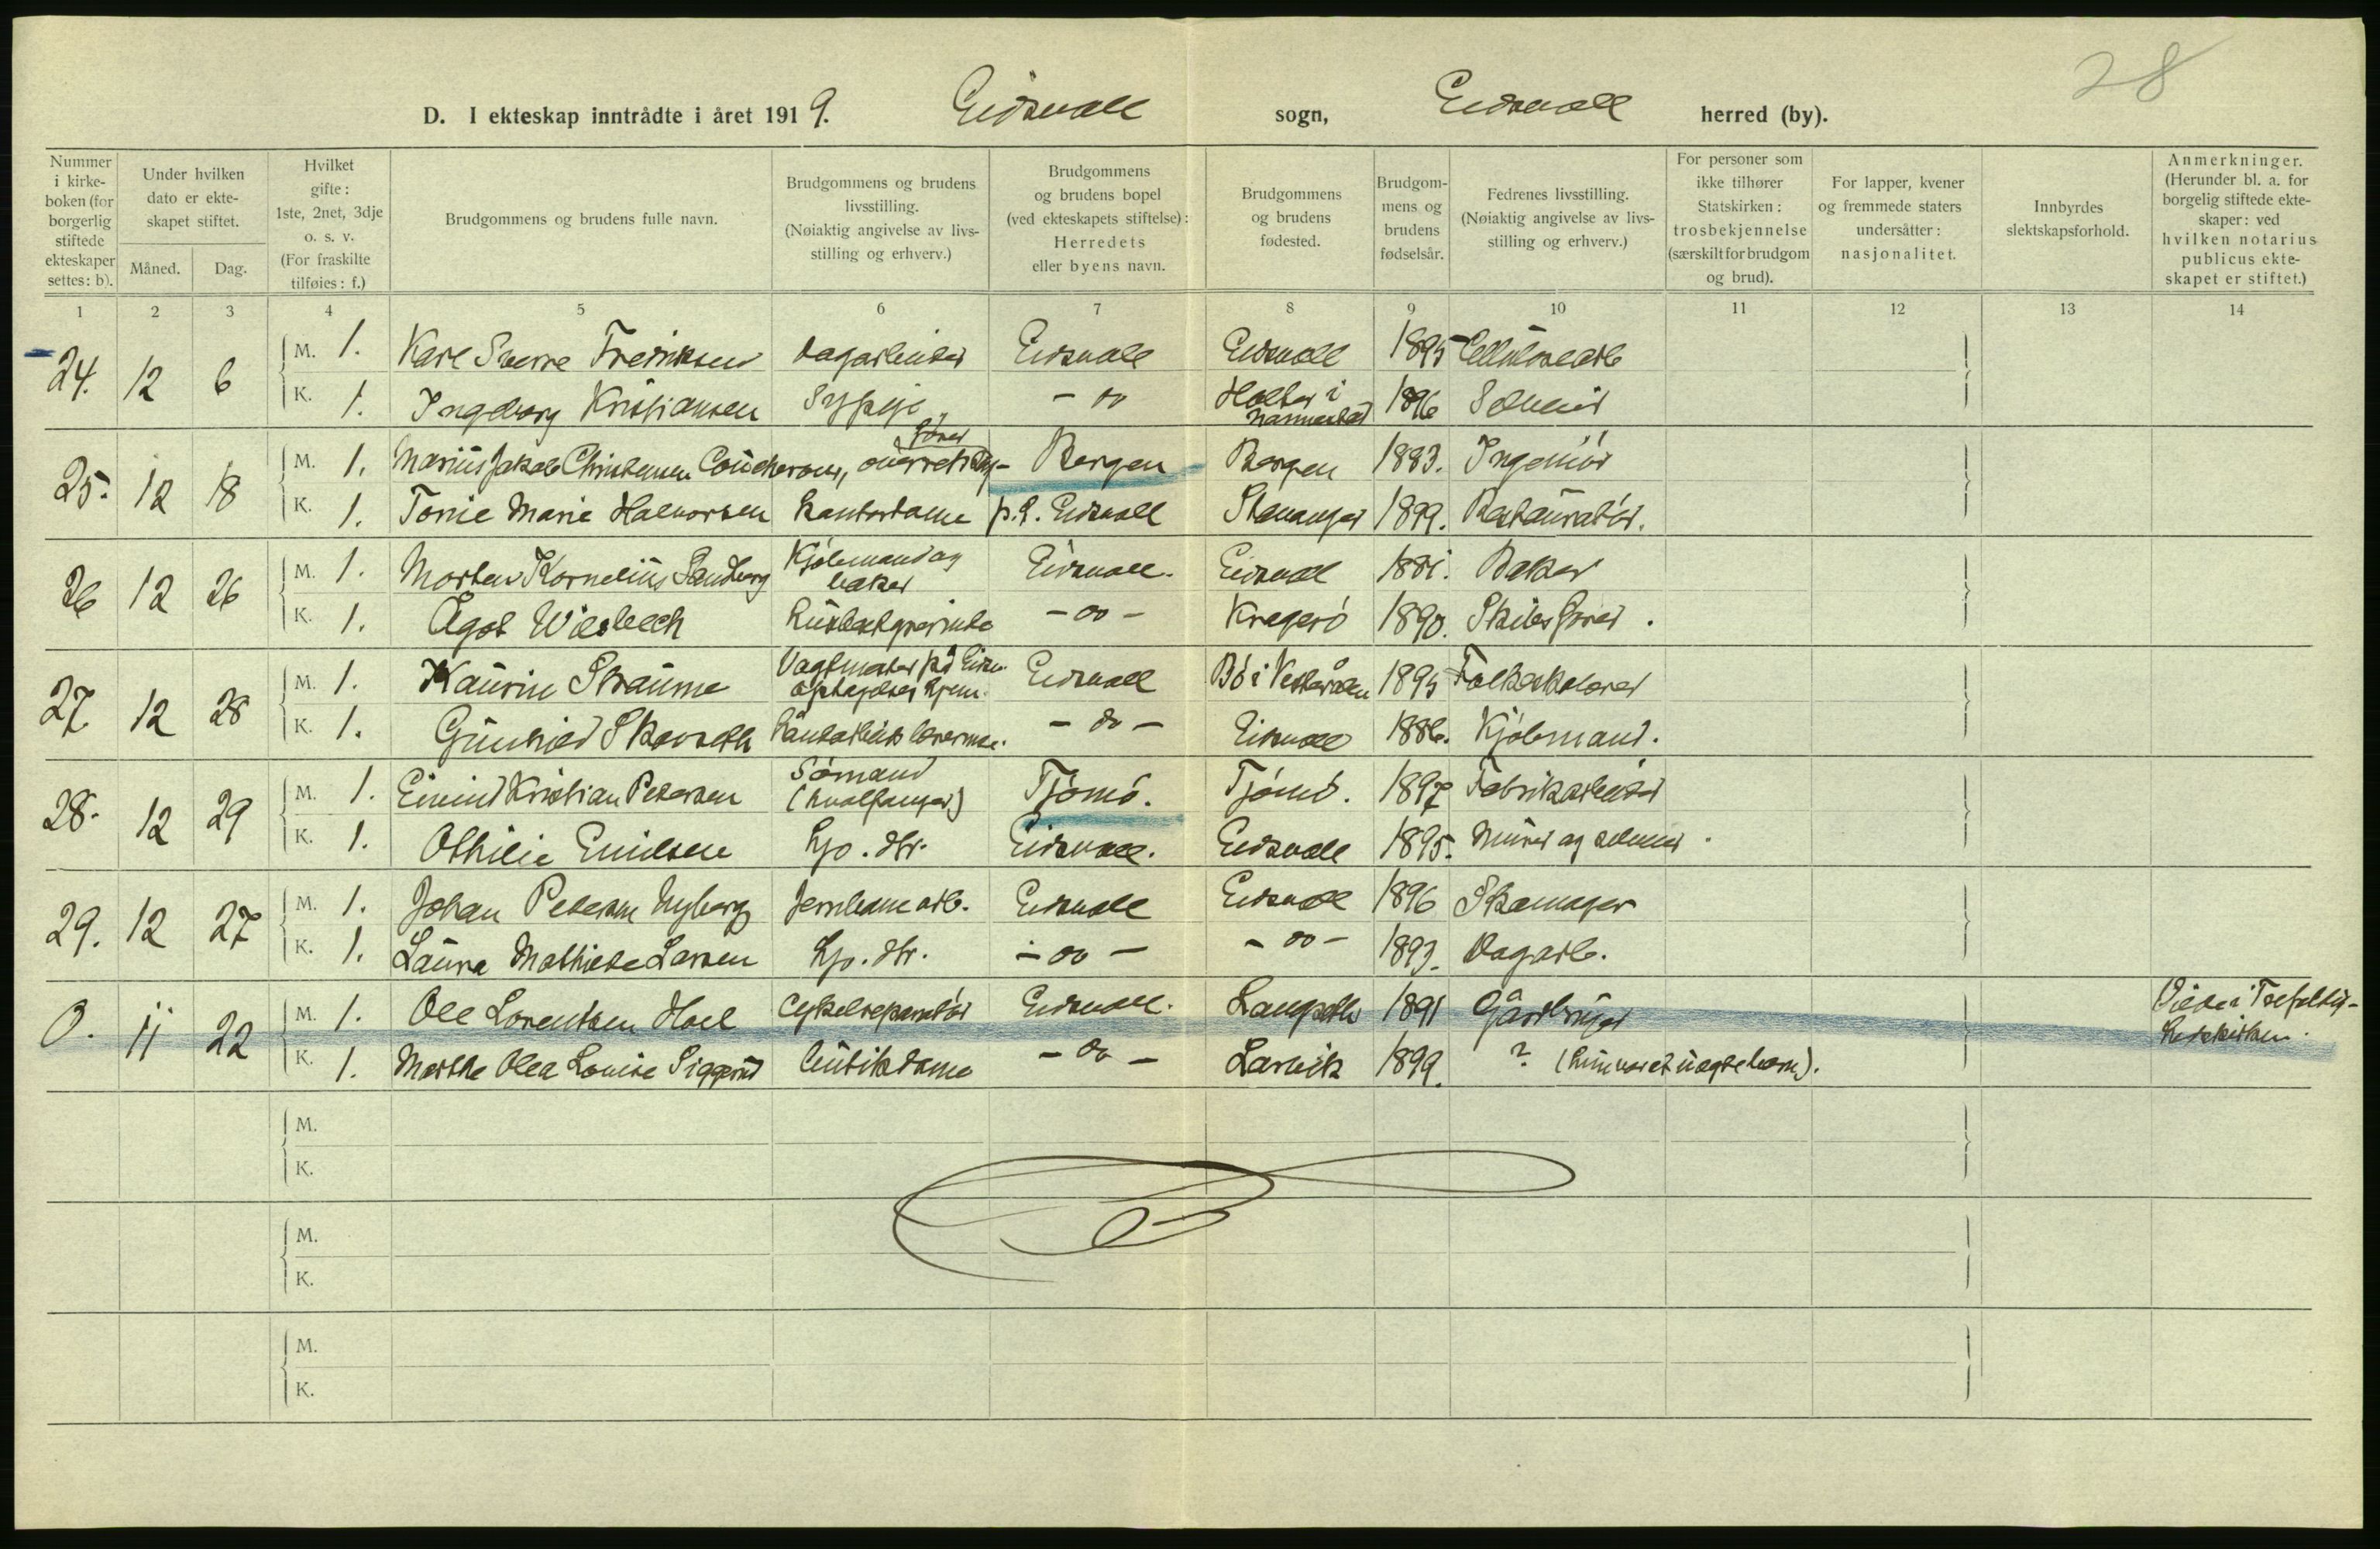 28
D. I ekteskap inntrådte i året 1919. Eidsvoll sogn, Eidsvoll herred (by).
Nummer i kirkeboken (for borgerlig stiftede ekteskaper settes: b).
Under hvilken dato er ekteskapet stiftet.
Måned. Dag.
Hvilket gifte: 1ste, 2net, 3dje o. s. v. (For fraskilte tilføies: f.)
Brudgommens og brudens fulle navn.
Brudgommens og brudens livsstilling. (Nøiaktig angivelse av livsstilling og erhverv.)
Brudgommens og brudens bopel (ved ekteskapets stiftelse): Herredets eller byens navn.
Brudgommens og brudens fødested.
Brudgommens og brudens fødselsår.
Fedrenes livsstilling. (Nøiaktig angivelse av livsstilling og erhverv.)
For personer som ikke tilhører Statskirken: trosbekjennelse (særskilt for brudgom og brud).
For lapper, kvener og fremmede staters undersåtter: nasjonalitet.
Innbyrdes slektskapsforhold.
Anmerkninger. (Herunder bl. a. for borgelig stiftede ekteskaper: ved hvilken notarius publicus ekteskapet er stiftet.)
1 2 3 4 5 6 7 8 9 10 11 12 13 14
24. 12 6 M. 1. Karl Sverre Fredriksen Dagarbeider Eidsvoll Eidsvoll 1895 Cellulosearb
K. 1. Ingeborg Kristiansen Sypige - do Holter i Nannestad 1896 Selveier
25. 12 18 M. 1. Marius Jakob Christensen Coucheron, overretssagfører Bergen Bergen 1883. Ingeniör
K. 1. Tonie Marie Halvorsen Kontordame p.t. Eidsvoll Stavanger 1899. Restauratör.
26 12 26 M. 1. Morten Kornelius Sandberg Kjöbmand og baker Eidsvoll. Eidsvoll 1881. Baker
K. 1. Ågot Wiesbech Husbestyrerinde - do - Kragerö 1890. Skibsförer.
27. 12 28 M. 1. Kaurin Straume Vagtmester på Eidsv. optagelseshjem. Eidsvoll Bö i Vesterålen 1895 Folkeskolelærer
K. 1. Gunhild Skavseth Håndarbeids lærerinde. - do - Eidsvoll 1886. Kjöbmand.
28. 12 29 M. 1. Eivind Kristian Petersen Sömand (hvalfanger) Tjömö. Tjömö. 1897 Fabrikarbeider
K. 1. Othilie Emilsen Hjv. dtr. Eidsvoll. Eidsvoll 1895. Murer og selveier.
29. 12 27 M. 1. Johan Petersen Nyberg Jernbanearb. Eidsvoll Eidsvoll 1896 Skomager
K. 1. Laura Mathilde Larsen Hjv. dtr. - do - - do - 1893. Dagarb.
0. 11 22 M. 1. Ole Lorentsen Hoel Cykelreparatör Eidsvoll. Langseth 1891 Gårdbruger Viede i Trefoldighedskirken.
K. 1. Marthe Olea Louise Siggerud Butikdame - do - Larvik 1899. ? (hun var et uægte barn).
M.
K.
M.
K.
M.
K.